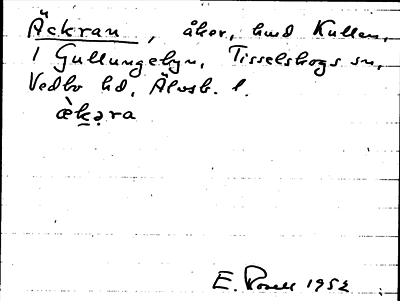 Äckran, åker, hmd Kullen,
1 Gullungebyn, Tisselskogs sn,
Vedbo hd, Älvsb. l.
æ̀kəra
E. 1952